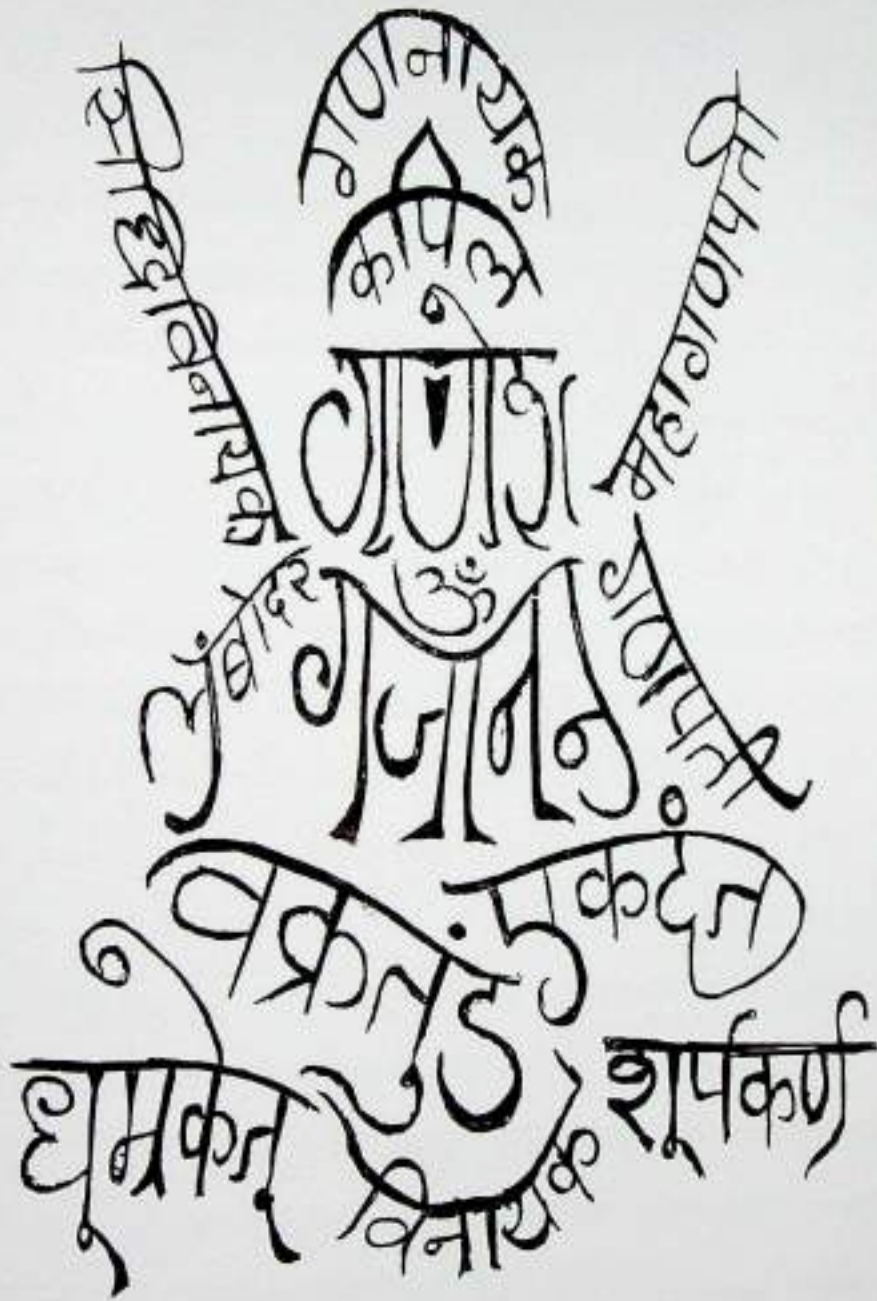 गणनायक
कपिल
सिद्धिविनायक
महागणपती
गणेश
ॐ
लंबोदर
गजानन
गणपती
वक्रतुंड
एकदंत
धूम्रकेतू
शूर्पकर्ण
विनायक